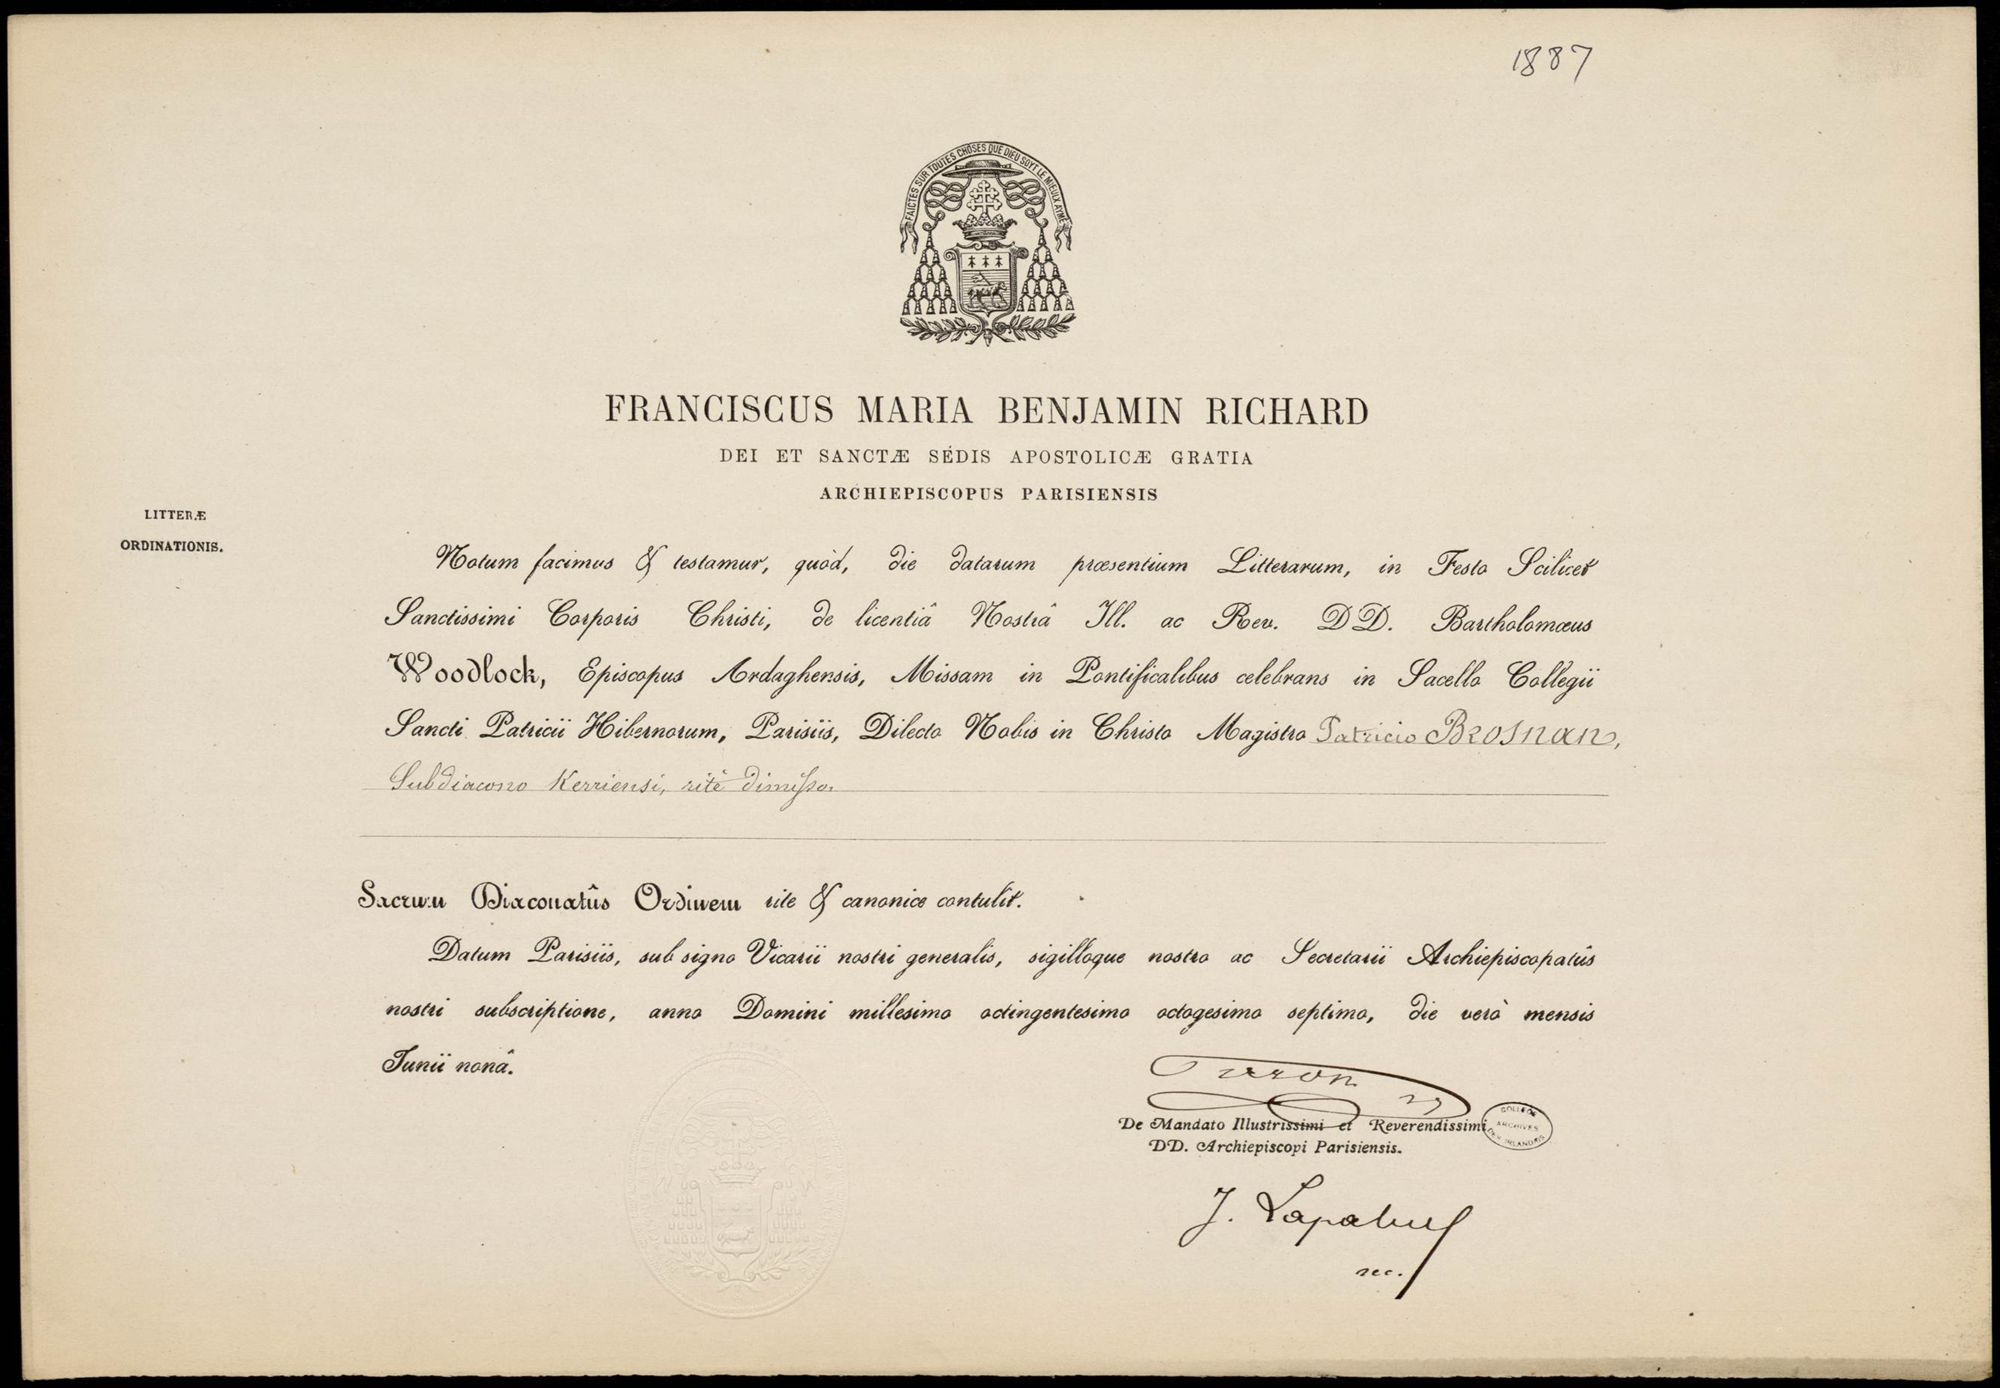 1887
FAICTES SUR TOUTES CHOSES QUE DIEU SOYT LE MIEULX AYMÉ
FRANCISCUS MARIA BENJAMIN RICHARD
DEI ET SANCTÆ SEDIS APOSTOLICÆ GRATIA
ARCHIEPISCOPUS PARISIENSIS
LITTERÆ
ORDINATIONIS.
Notum facimus & testamur, quòd, die datarum præsentium Litterarum, in Festo Scilicet
Sanctissimi Corporis Christi, de licentiâ Nostrâ Ill. ac Rev. DD. Bartholomæus
Woodlock, Episcopus Ardaghensis, Missam in Pontificalibus celebrans in Sacello Collegii
Sancti Patricii Hibernorum, Parisiis, Dilecto Nobis in Christo Magistro Patricio Brosnan,
Subdiacono Kerriensi, ritè dimisso.
Sacrum Diaconatûs Ordinem rite & canonice contulit.
Datum Parisiis, sub signo Vicarii nostri generalis, sigilloque nostro ac Secretarii Archiepiscopatûs
nostri subscriptione, anno Domini millesimo octingentesimo octogesimo septimo, die verò mensis
Junii nonâ.
De Mandato Illustrissimi et Reverendissimi
DD. Archiepiscopi Parisiensis.
COLLÈGE
ARCHIVES
DES IRLANDAIS
J.